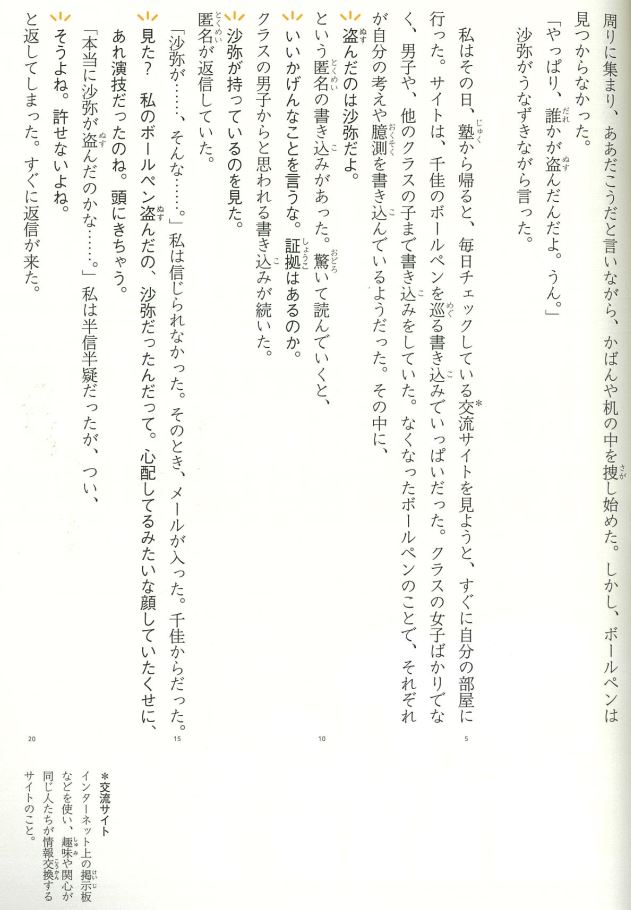 周りに集まり、ああだこうだと言いながら、かばんや机の中を捜し始めた。しかし、ボールペンは
見つからなかった。
「やっぱり、誰かが盗んだんだよ。うん。」
沙弥がうなずきながら言った。
私はその日、塾から帰ると、毎日チェックしている交流サイトを見ようと、すぐに自分の部屋に
行った。サイトは、千佳のボールペンを巡る書き込みでいっぱいだった。クラスの女子ばかりでな
く、男子や、他のクラスの子まで書き込みをしていた。なくなったボールペンのことで、それぞれ
が自分の考えや臆測を書き込んでいるようだった。その中に、
盗んだのは沙弥だよ。
という匿名の書き込みがあった。驚いて読んでいくと、
いいかげんなことを言うな。証拠はあるのか。
クラスの男子からと思われる書き込みが続いた。
沙弥が持っているのを見た。
匿名が返信していた。
「沙弥が……、そんな……。」私は信じられなかった。そのとき、メールが入った。千佳からだった。
見た？　私のボールペン盗んだの、沙弥だったんだって。心配してるみたいな顔していたくせに、
あれ演技だったのね。頭にきちゃう。
「本当に沙弥が盗んだのかな……。」私は半信半疑だったが、つい、
そうよね。許せないよね。
と返してしまった。すぐに返信が来た。
5
10
15
20
＊交流サイト
インターネット上の掲示板
などを使い、趣味や関心が
同じ人たちが情報交換する
サイトのこと。